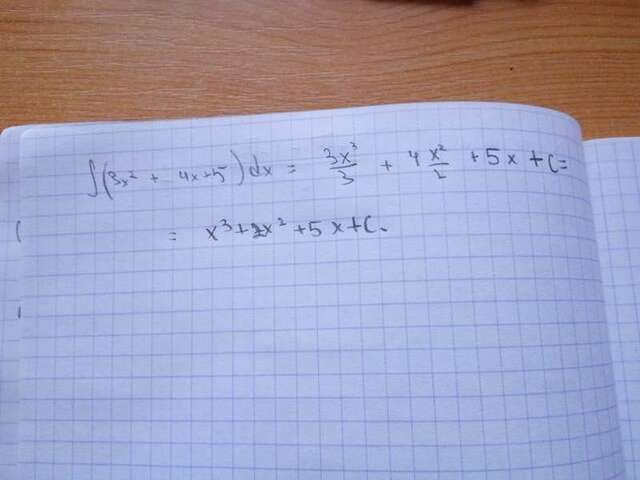 ∫(3x² + 4x+5)dx = 3x³/3 + 4 x²/2 + 5x + C =
= x³+2x²+5x+C.